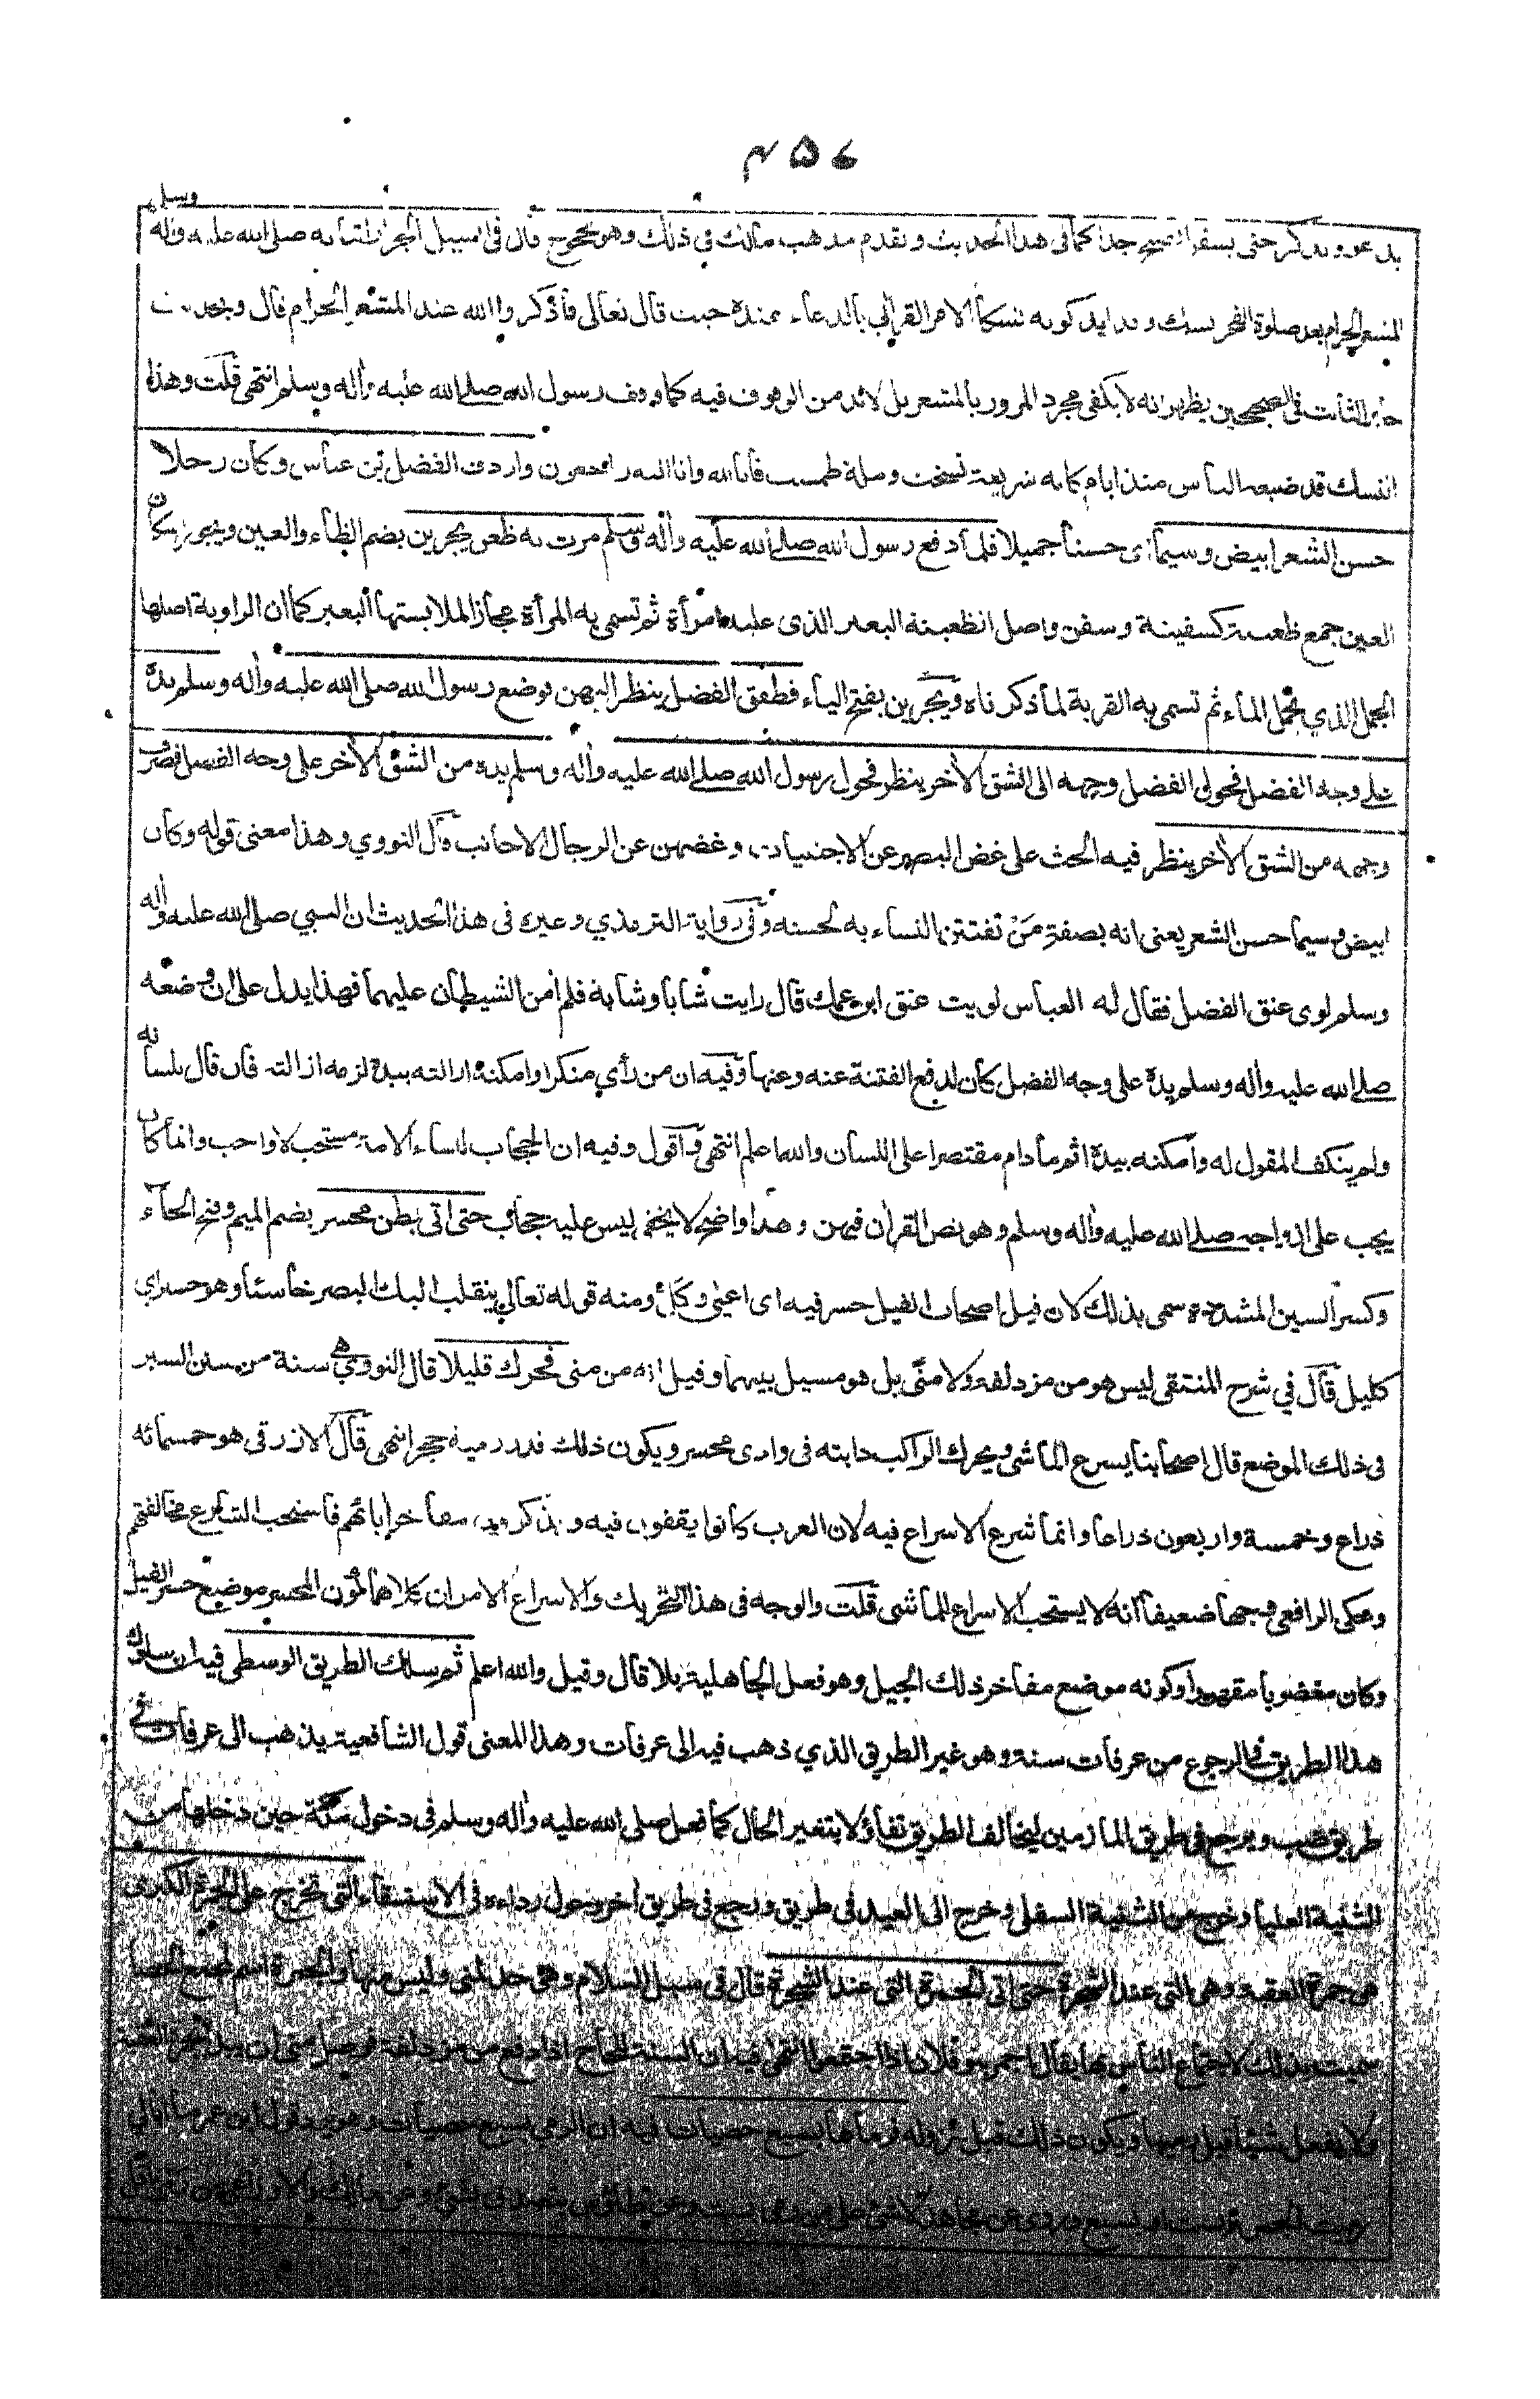 ٤٥٧
يدعو ويذكر حتى يسفر الصبح جدا كما فى هذا الحديث وتقدم مذهب مالك فى ذلك وهو محجوج قال فى السيل الجرار اتيانه صلى الله عليه واله وسلم
المشعر الحرام بعد صلوة الفجر نسك وتدايد كونه نسكا الامر القرانى بالدعاء عنده حيث قال تعالى فاذكروا الله عند المشعر الحرام قال وبحديث
جابر الثابت فى الصحيحين يظهر انه لا يكفى مجرد المرور بالمشعر بل لابد من الوقوف فيه كما وقف رسول الله صلى الله عليه واله وسلم انتهى قلت وهذا
النسك قد ضيعه الناس منذ ايام كانه شريعة نسخت وملة طمست فانا لله وانا اليه راجعون واردف الفضل بن عباس وكان رجلا
حسن الشعر ابيض وسيما اى حسنا جميلا فلما دفع رسول الله صلى الله عليه واله وسلم مرت به ظعن يجرين بضم الظاء والعين ويجوز اسكان
العين جمع ظعينة كسفينة وسفن واصل الظعينة البعير الذى عليه امرأة ثم تسمى به المرأة مجازا لملابستها البعير كما ان الراوية اصلها
الجمل الذي يحمل الماء ثم تسمى به القربة لما ذكرناه ويجرين بفتح الياء فطفق الفضل ينظر اليهن فوضع رسول الله صلى الله عليه واله وسلم يده
على وجه الفضل فحول الفضل وجهه الى الشق الأخر ينظر فحول رسول الله صلى الله عليه واله وسلم يده من الشق الأخر على وجه الفضل فصرف
وجهه من الشق الأخر ينظر فيه الحث على غض البصر عن الاجنبيات وغضهن عن الرجال الاجانب قال النووي وهذا معنى قوله وكان
ابيض وسيما حسن الشعر يعنى انه بصفة مَنْ تفتتن النساء به لحسنه وفى رواية الترمذي وغيره فى هذا الحديث ان النبي صلى الله عليه واله
وسلم لوى عنق الفضل فقال له العباس لويت عنق ابن عمك قال رايت شابا وشابة فلم أمن الشيطان عليهما فهذا يدل على ان وضعه
صلى الله عليه واله وسلم يده على وجه الفضل كان لدفع الفتنة عنه وعنها وفيه ان من رأي منكرا وامكنه ازالته بيده لزمه ازالته فان قال بلسانه
ولم ينكف المقول له وامكنه بيده اثم مادام مقتصرا على اللسان والله اعلم انتهى واقول وفيه ان الحجاب لنساء الامة مستحب لا واجب وانما كان
يجب على ازواجه صلى الله عليه واله وسلم وهو نص القرأن فيهن وهذا واضح لا يخفى ليس عليه حجاب حتى اتى بطن محسر بضم الميم وفتح الحاء
وكسر السين المشددة سمى بذلك لان فيل اصحاب الفيل حسر فيه اى اعيى وكَلّ ومنه قوله تعالى ينقلب اليك البصر خاسئا وهو حسير اي
كليل قال في شرح المنتقى ليس هو من مزدلفة ولا منًى بل هو مسيل بينهما وقيل انه من منى فحرك قليلا قال النووي هى سنة من سنن السير
فى ذلك الموضع قال اصحابنا يسرع الماشى ويحرك الراكب دابته فى وادى محسر ويكون ذلك قدر رمية حجر انتهى قال الازرقى هو خمسمائه
ذراع وخمسة واربعون ذراعا وانما شرع الاسراع فيه لان العرب كانوا يقفون فيه ويذكرون مفاخر أبائهم فاستحب الشارع مخالفتهم
وحكى الرافعى وجها ضعيفا انه لا يستحب الاسراع للماشى قلت والوجه فى هذا التحريك والاسراع الامران كلاهما لكون المحسر موضع حسر الفيل
وكان مغضوبا مقهورا وكونه موضع مفاخر ذلك الجيل وهو فعل الجاهلية بلا قال وقيل والله اعلم ثم سلك الطريق الوسطى فيه ان سلوك
هذا الطريق فى الرجوع من عرفات سنة وهو غير الطريق الذي ذهب فيه الى عرفات وهذا المعنى قول الشافعية يذهب الى عرفات فى
طريق ضب ويرجع فى طريق المازمين ليخالف الطريق تفاؤلا بتغير الحال كما فعل صلى الله عليه واله وسلم فى دخول مكة حين دخلها من
الثنية العليا وخرج من الثنية السفلى وخرج الى العيد فى طريق ورجع فى طريق أخر وحول رداءه فى الاستسقاء التى تخرج على الجمرة الكبرى
هى جمرة العقبة وهى التى عند الشجرة حتى اتى الجمرة التى عند الشجرة قال فى سبل السلام وهى حد لمنى وليس منها والجمرة اسم لمجتمع الحصا
سميت بذلك لاجتماع الناس بها يقال اجمر بنو فلان اذا اجتمعوا انتهى فيه ان السنة للحاج اذا دفع من مزدلفة فوصل منى ان يبدأ بجمرة العقبة
ولا يفعل شيئا قبل رميها ويكون ذلك قبل نزوله فرماها بسبع حصيات فيه ان الرمي بسبع حصيات وهو يرد قول ابن عمر ما ابالي
رميت الجمرة بست او بسبع وروى عن مجاهد لا شئ على من رمى بست وعن طاؤس يتصدق بشئ وعن مالك والاوزاعى من